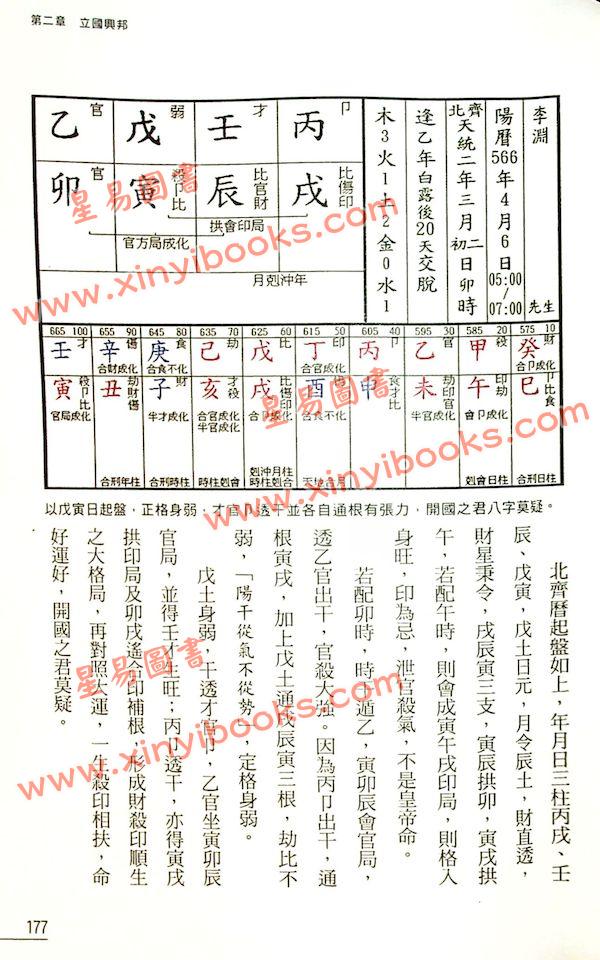 第二章 立國興邦
李淵 先生
陽曆566年4月6日05:00/07:00
北齊天統二年三月初二日卯時
逢乙年白露後20天交脫
木3火1土2金0水1
乙官 戊弱 壬才 丙卩
卯官 寅殺卩比 辰比官財 戌比傷印
拱會印局
官方局成化
月剋沖年
665 100 655 90 645 80 635 70 625 60 615 50 605 40 595 30 585 20 575 10
壬才 辛傷 庚食 己劫 戊比 丁印 丙卩 乙官 甲殺 癸財
合財成化 合食不化 合官成化 合卩成化
寅殺卩比 丑劫財傷 子財 亥才殺 戌比傷印 酉傷 申食才比 未劫印官 午印劫 巳卩比食
官局成化 半才成化 合官成化 合卩成化 合食不化 半官成化 會卩成化
半官成化
合刑年柱 合刑時柱 時柱剋會 剋沖月柱 天地合月 剋會日柱 合刑日柱
時柱剋合
以戊寅日起盤，正格身弱；才官卩透干並各自通根有張力，開國之君八字莫疑。
北齊曆起盤如上，年月日三柱丙戌、壬
辰、戊寅，戊土日元，月令辰土，財直透，
財星秉令，戌辰寅三支，寅辰拱卯，寅戌拱
午，若配午時，則會成寅午戌印局，則格入
身旺，印為忌，泄官殺氣，不是皇帝命。
若配卯時，時干遁乙，寅卯辰會官局，
透乙官出干，官殺大強。因為丙卩出干，通
根寅戌，加上戊土通戌辰寅三根，劫比不
弱，「陽干從氣不從勢」，定格身弱。
戊土身弱，干透才官卩，乙官坐寅卯辰
官局，並得壬才生旺；丙卩透干，亦得寅戌
拱印局及卯戌遙合印補根，形成財殺印順生
之大格局，再對照大運，一生殺印相扶，命
好運好，開國之君莫疑。
177
星易圖書
www.xinyibooks.com
星易圖書
www.xinyibooks.com
星易圖書
www.xinyibooks.com